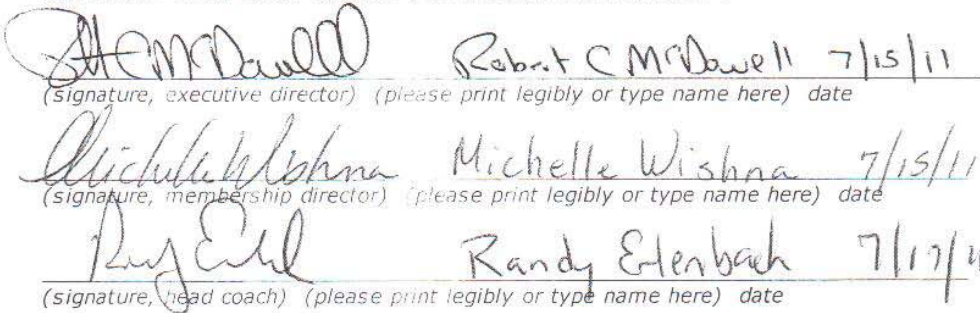 Robert C McDowell 7/15/11
(signature, executive director) (please print legibly or type name here) date
Michelle Wishna Michelle Wishna 7/15/11
(signature, membership director) (please print legibly or type name here) date
Randy 7/17/
(signature, head coach) (please print legibly or type name here) date